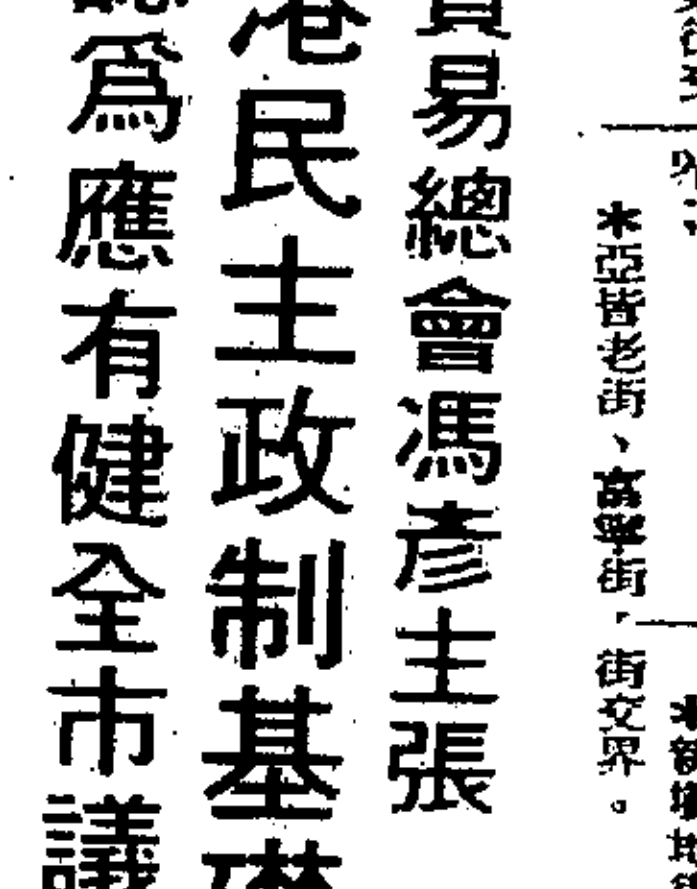 ＊亞皆老街、街，街交界。
貿易總會馮彥主張
港民主政制基
爲應有健全市議